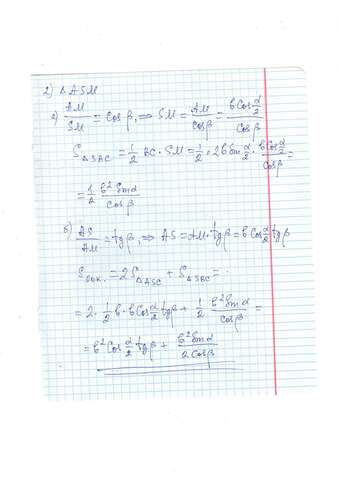 2) Δ ASM
а) AM/SM = Cos β, ⇒ SM = AM/cos β = в Cos α/2 / Cos β
S ΔSBC = 1/2 BC · SM = 1/2 · 2в Sin α/2 · в Cos α/2 / Cos β =
= 1/2 в² Sin α / cos β
б) AS/AM = tg β, ⇒ AS = AM · tg β = в Cos α/2 tg β
S бок. = 2 S ΔASC + S ΔSBC =
= 2 · 1/2 в · в Cos α/2 tg β + 1/2 в² Sin α / cos β =
= в² Cos α/2 tg β + в² Sin α / 2 Cos β